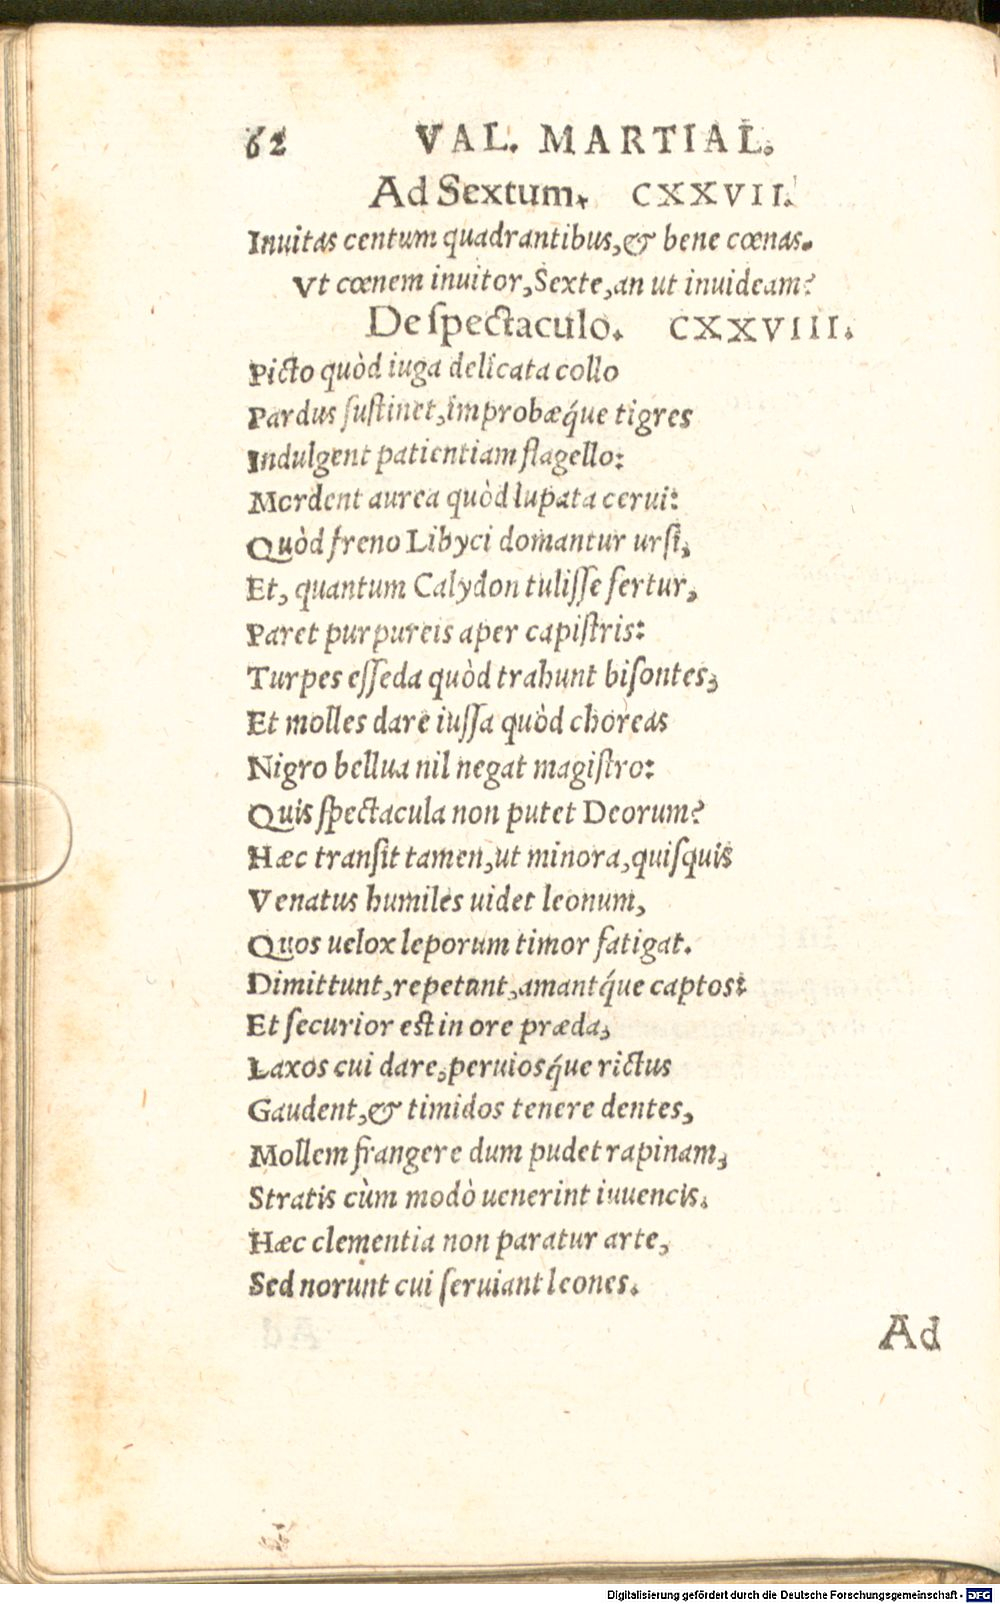 62 VAL. MARTIAL.
Ad Sextum. CXXVII.
Inuitas centum quadrantibus, & bene cœnas.
Vt cœnem inuitor, Sexte, an ut inuideam?
De ſpectaculo. CXXVIII.
Picto quòd iuga delicata collo
Pardus ſuſtinet, improbæq́ue tigres
Indulgent patientiam flagello:
Mordent aurea quòd lupata cerui:
Quòd freno Libyci domantur urſi,
Et, quantum Calydon tuliſſe fertur,
Paret purpureis aper capiſtris:
Turpes eſſeda quòd trahunt biſontes,
Et molles dare iuſſa quòd choreas
Nigro bellua nil negat magiſtro:
Quis ſpectacula non putet Deorum?
Hæc tranſit tamen, ut minora, quiſquis
Venatus humiles uidet leonum,
Quos uelox leporum timor fatigat.
Dimittunt, repetunt, amantq́ue captos:
Et ſecurior eſt in ore præda,
Laxos cui dare, peruiosq́ue rictus
Gaudent, & timidos tenere dentes,
Mollem frangere dum pudet rapinam,
Stratis cùm modò uenerint iuuencis.
Hæc clementia non paratur arte,
Sed norunt cui ſeruiant leones.
Ad
Digitalisierung gefördert durch die Deutsche Forschungsgemeinschaft - DFG